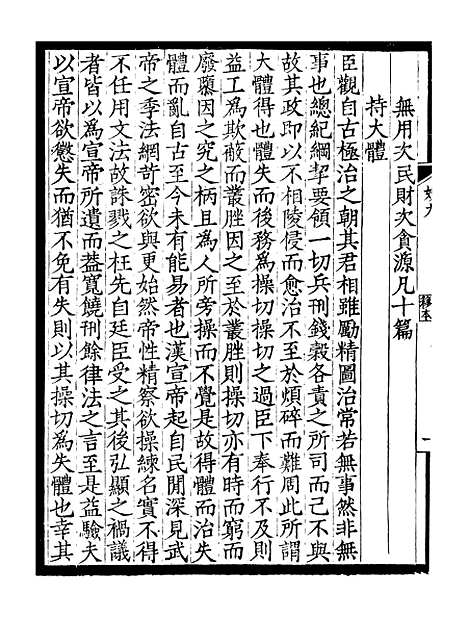 無用次民財次貪源凡十篇
持大體
臣觀自古極治之朝其君相雖勵精圖治常若無事然非無
事也總紀綱挈要領一切兵刑錢穀各責之所司而己不與
故其政即以不相陵侵而愈治不至於煩碎而難周此所謂
大體得也體不得而後務為操切操切之過臣下奉行不及則
益工為欺蔽而叢脞因之至於叢脞則操切亦有時而窮而
廢隳因之究之柄且為人所旁操而不覺是故得體而治失
體而亂自古至今未有能易者也漢宣帝起自民間深見武
帝之季法網苛密欲與更始然帝性精察欲操練名實不得
不任用文法故誅戮之枉先自廷臣受之其後弘顯之禍議
者皆以為宣帝所遺而蓋寬饒刑餘律法之言至是益驗夫
以宣帝欲懲失而猶不免有失則以其操切為失體也幸其